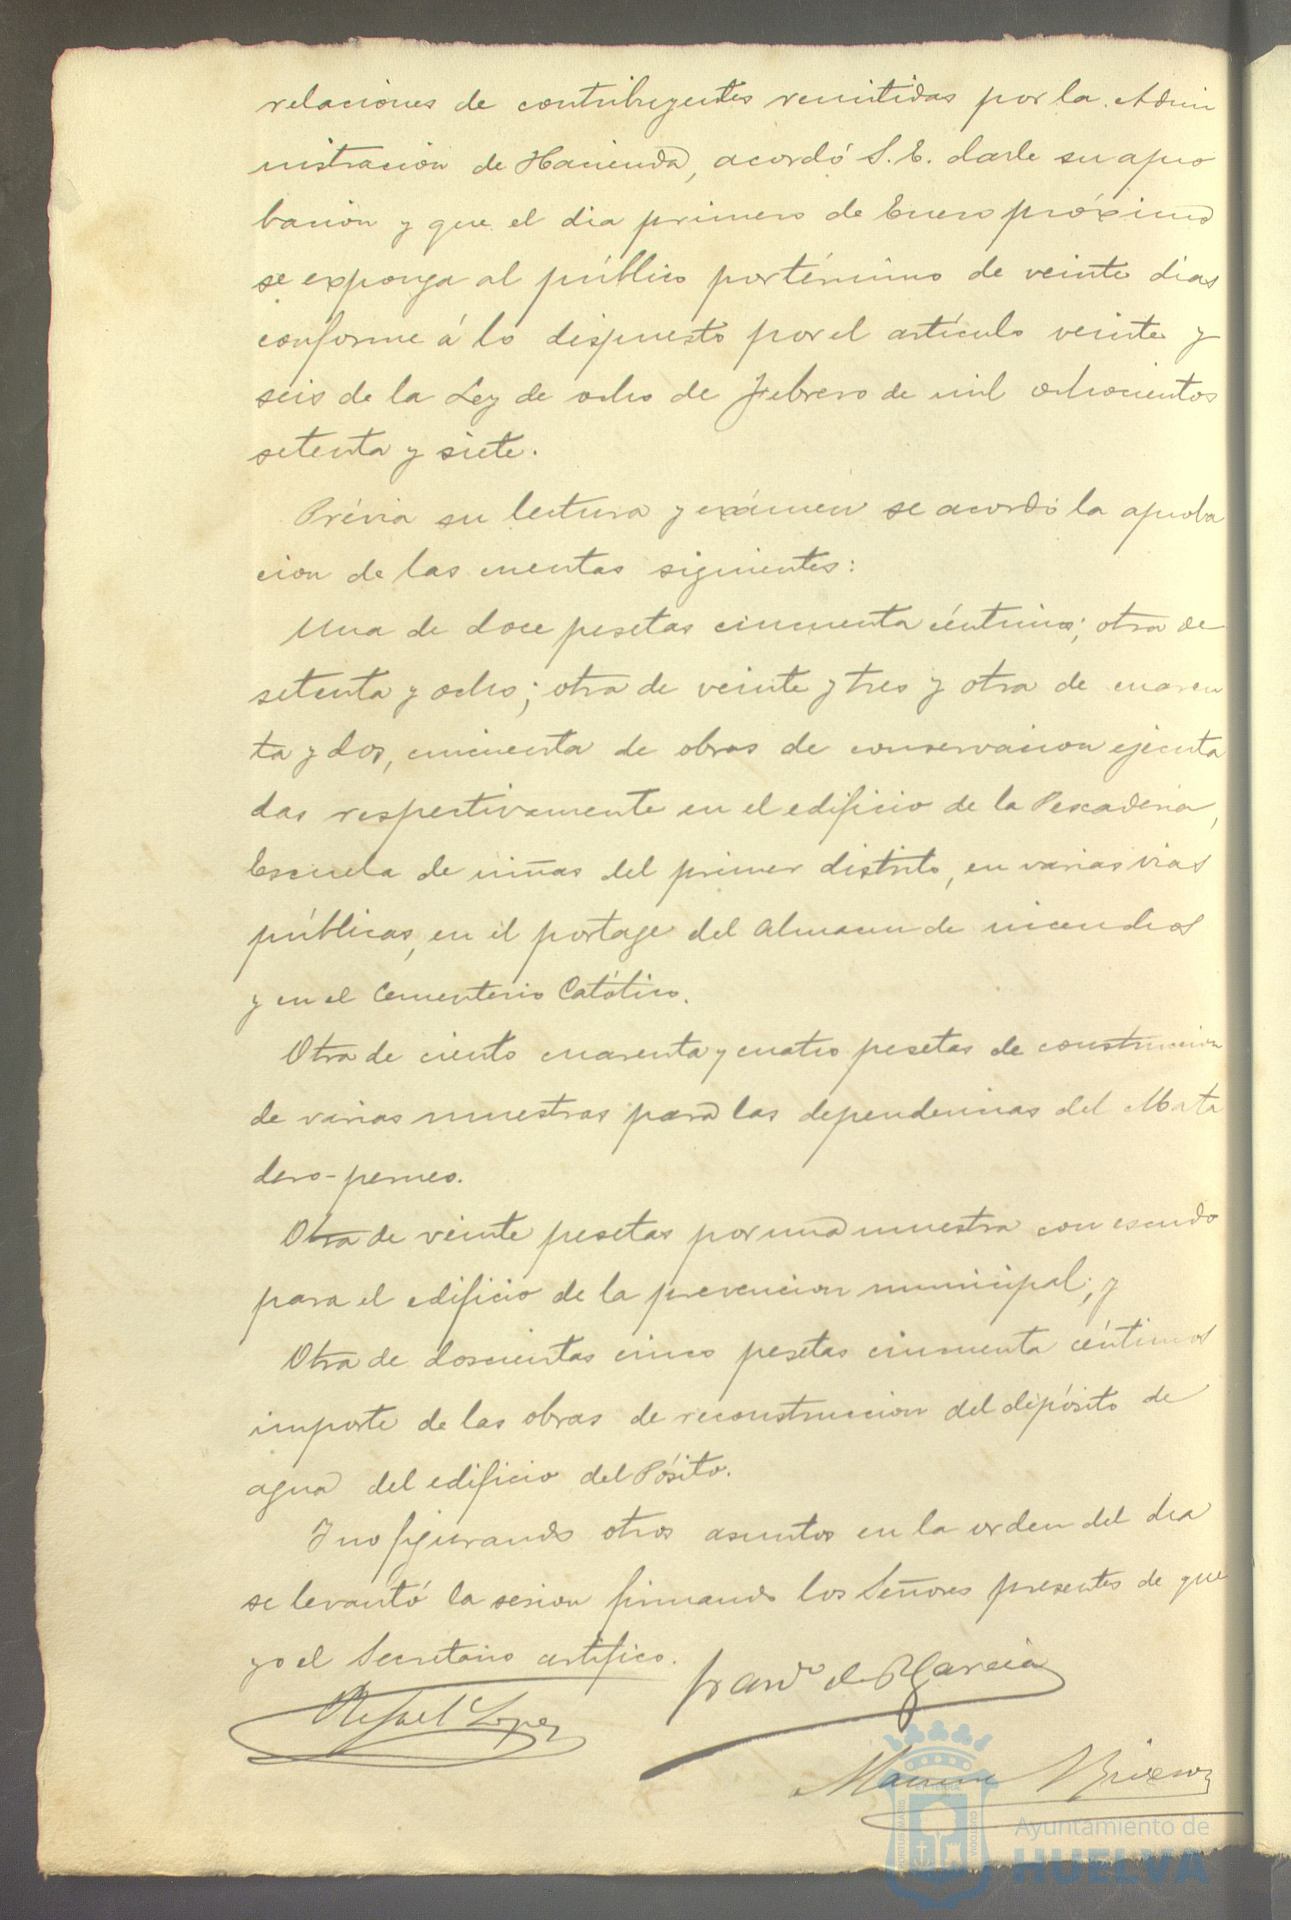 relaciones de contribuyentes remitidas por la Admi
nistracion de Hacienda, acordó S. E. darle su apro
bacion y que el dia primero de Enero próximo
se exponga al público por término de veinte dias
conforme á lo dispuesto por el artículo veinte y
seis de la Ley de ocho de Febrero de mil ochocientos
setenta y siete.
Prévia su lectura y exámen se acordó la aproba
cion de las cuentas siguientes:
Una de doce pesetas cincuenta céntimos; otra de
setenta y ocho; otra de veinte y tres y otra de cuaren
ta y dos, cincuenta de obras de conservacion ejecuta
das respectivamente en el edificio de la Pescaderia,
Escuela de niñas del primer distrito, en varias vias
públicas, en el portage del Almacen de incendios
y en el Cementerio Católico.
Otra de ciento cuarenta y cuatro pesetas de construccion
de varias muestras para las dependencias del Mata
dero-perneo.
Otra de veinte pesetas por una muestra con escudo
para el edificio de la prevencion municipal; y
Otra de doscientas cinco pesetas cincuenta céntimos
importe de las obras de reconstruccion del depósito de
agua del edificio del Pósito.
Y no figurando otros asuntos en la orden del dia
se levantó la sesion firmando los Señores presentes de que
yo el Secretario certifico.
Franco de P. Garcia
Rafael Lopez
Ayuntamiento de
HUELVA